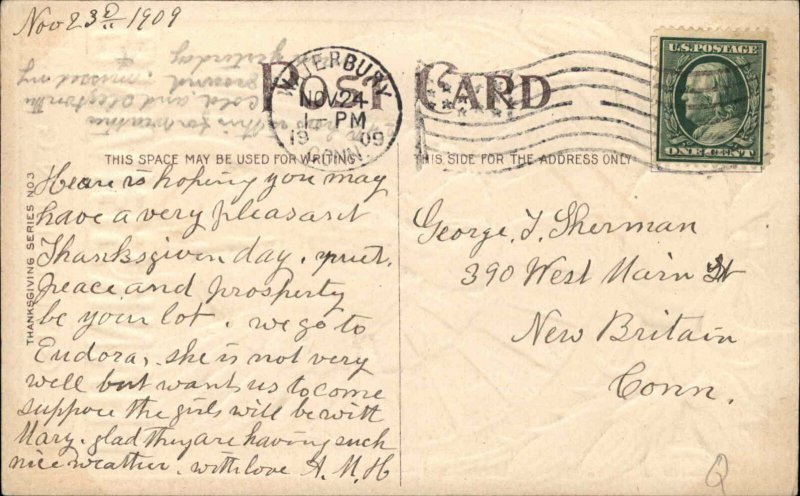 Nov 23D 1909
POST CARD
WATERBURY
NOV 24
1 - PM
1909
CONN.
U.S. POSTAGE
ONE CENT
THIS SPACE MAY BE USED FOR WRITING
THIS SIDE FOR THE ADDRESS ONLY
THANKSGIVING SERIES NO3
Heare is hoping you may
have a very pleasant
Thanksgiven day.
peace and prosperty
be your lot. we go to
Eudora, she is not very
well but wants us to come
suppose the girls will be with
Mary. glad they are having such
nice weather. with love A. M. H
George. T. Sherman
390 West Main St
New Britain
Conn.
yesterday
ground. missed my
cold and
Q